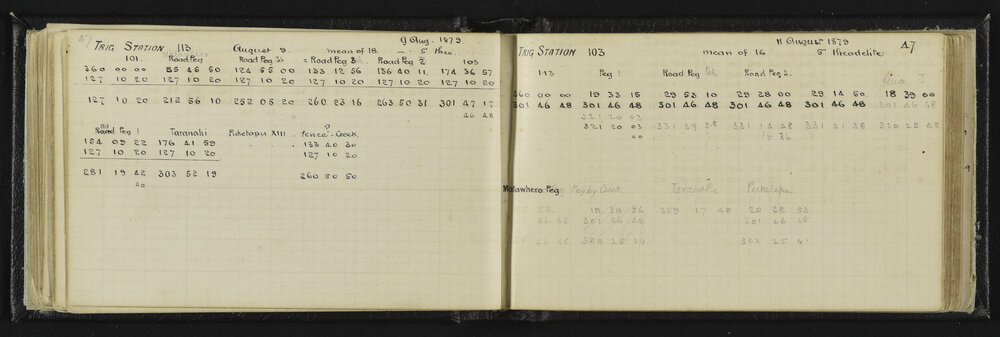 47
9 Aug. 1879
TRIG STATION 113 August 9. mean of 18. 5" theo.
101 Road Peg Road Peg Road Peg 3 Road Peg 2 103
360 00 00 85 45 50 124 55 00 133 12 56 136 40 11. 174 36 57
127 10 20 127 10 20 127 10 20 127 10 20 127 10 20 127 10 20
127 10 20 212 56 10 252 05 20 260 23 16 263 50 31 301 47 17
46 48
Road Peg 1 Taranaki Puketapu XIII Fence Creek
154 09 22 176 41 59 133 40 30
127 10 20 127 10 20 127 10 20
281 19 42 303 52 19 260 50 50
40
11 August 1879 47
TRIG STATION 103 mean of 16. 5" theodolite
113 Peg 1 Road Peg Road Peg 2.
360 00 00 19 33 15 29 53 10 29 28 00 29 14 50 18 39 00
301 46 48 301 46 48 301 46 48 301 46 48 301 46 48 301 46 48
321 20 03
321 20 03 331 39 58 331 14 48 331 01 38 320 25 48
40
Matawhero Peg Peg by Creek Taranaki Puketapu
18 38 56 359 17 48 20 38 53
46 48 301 46 48 301 46 48
320 25 44 322 25 41